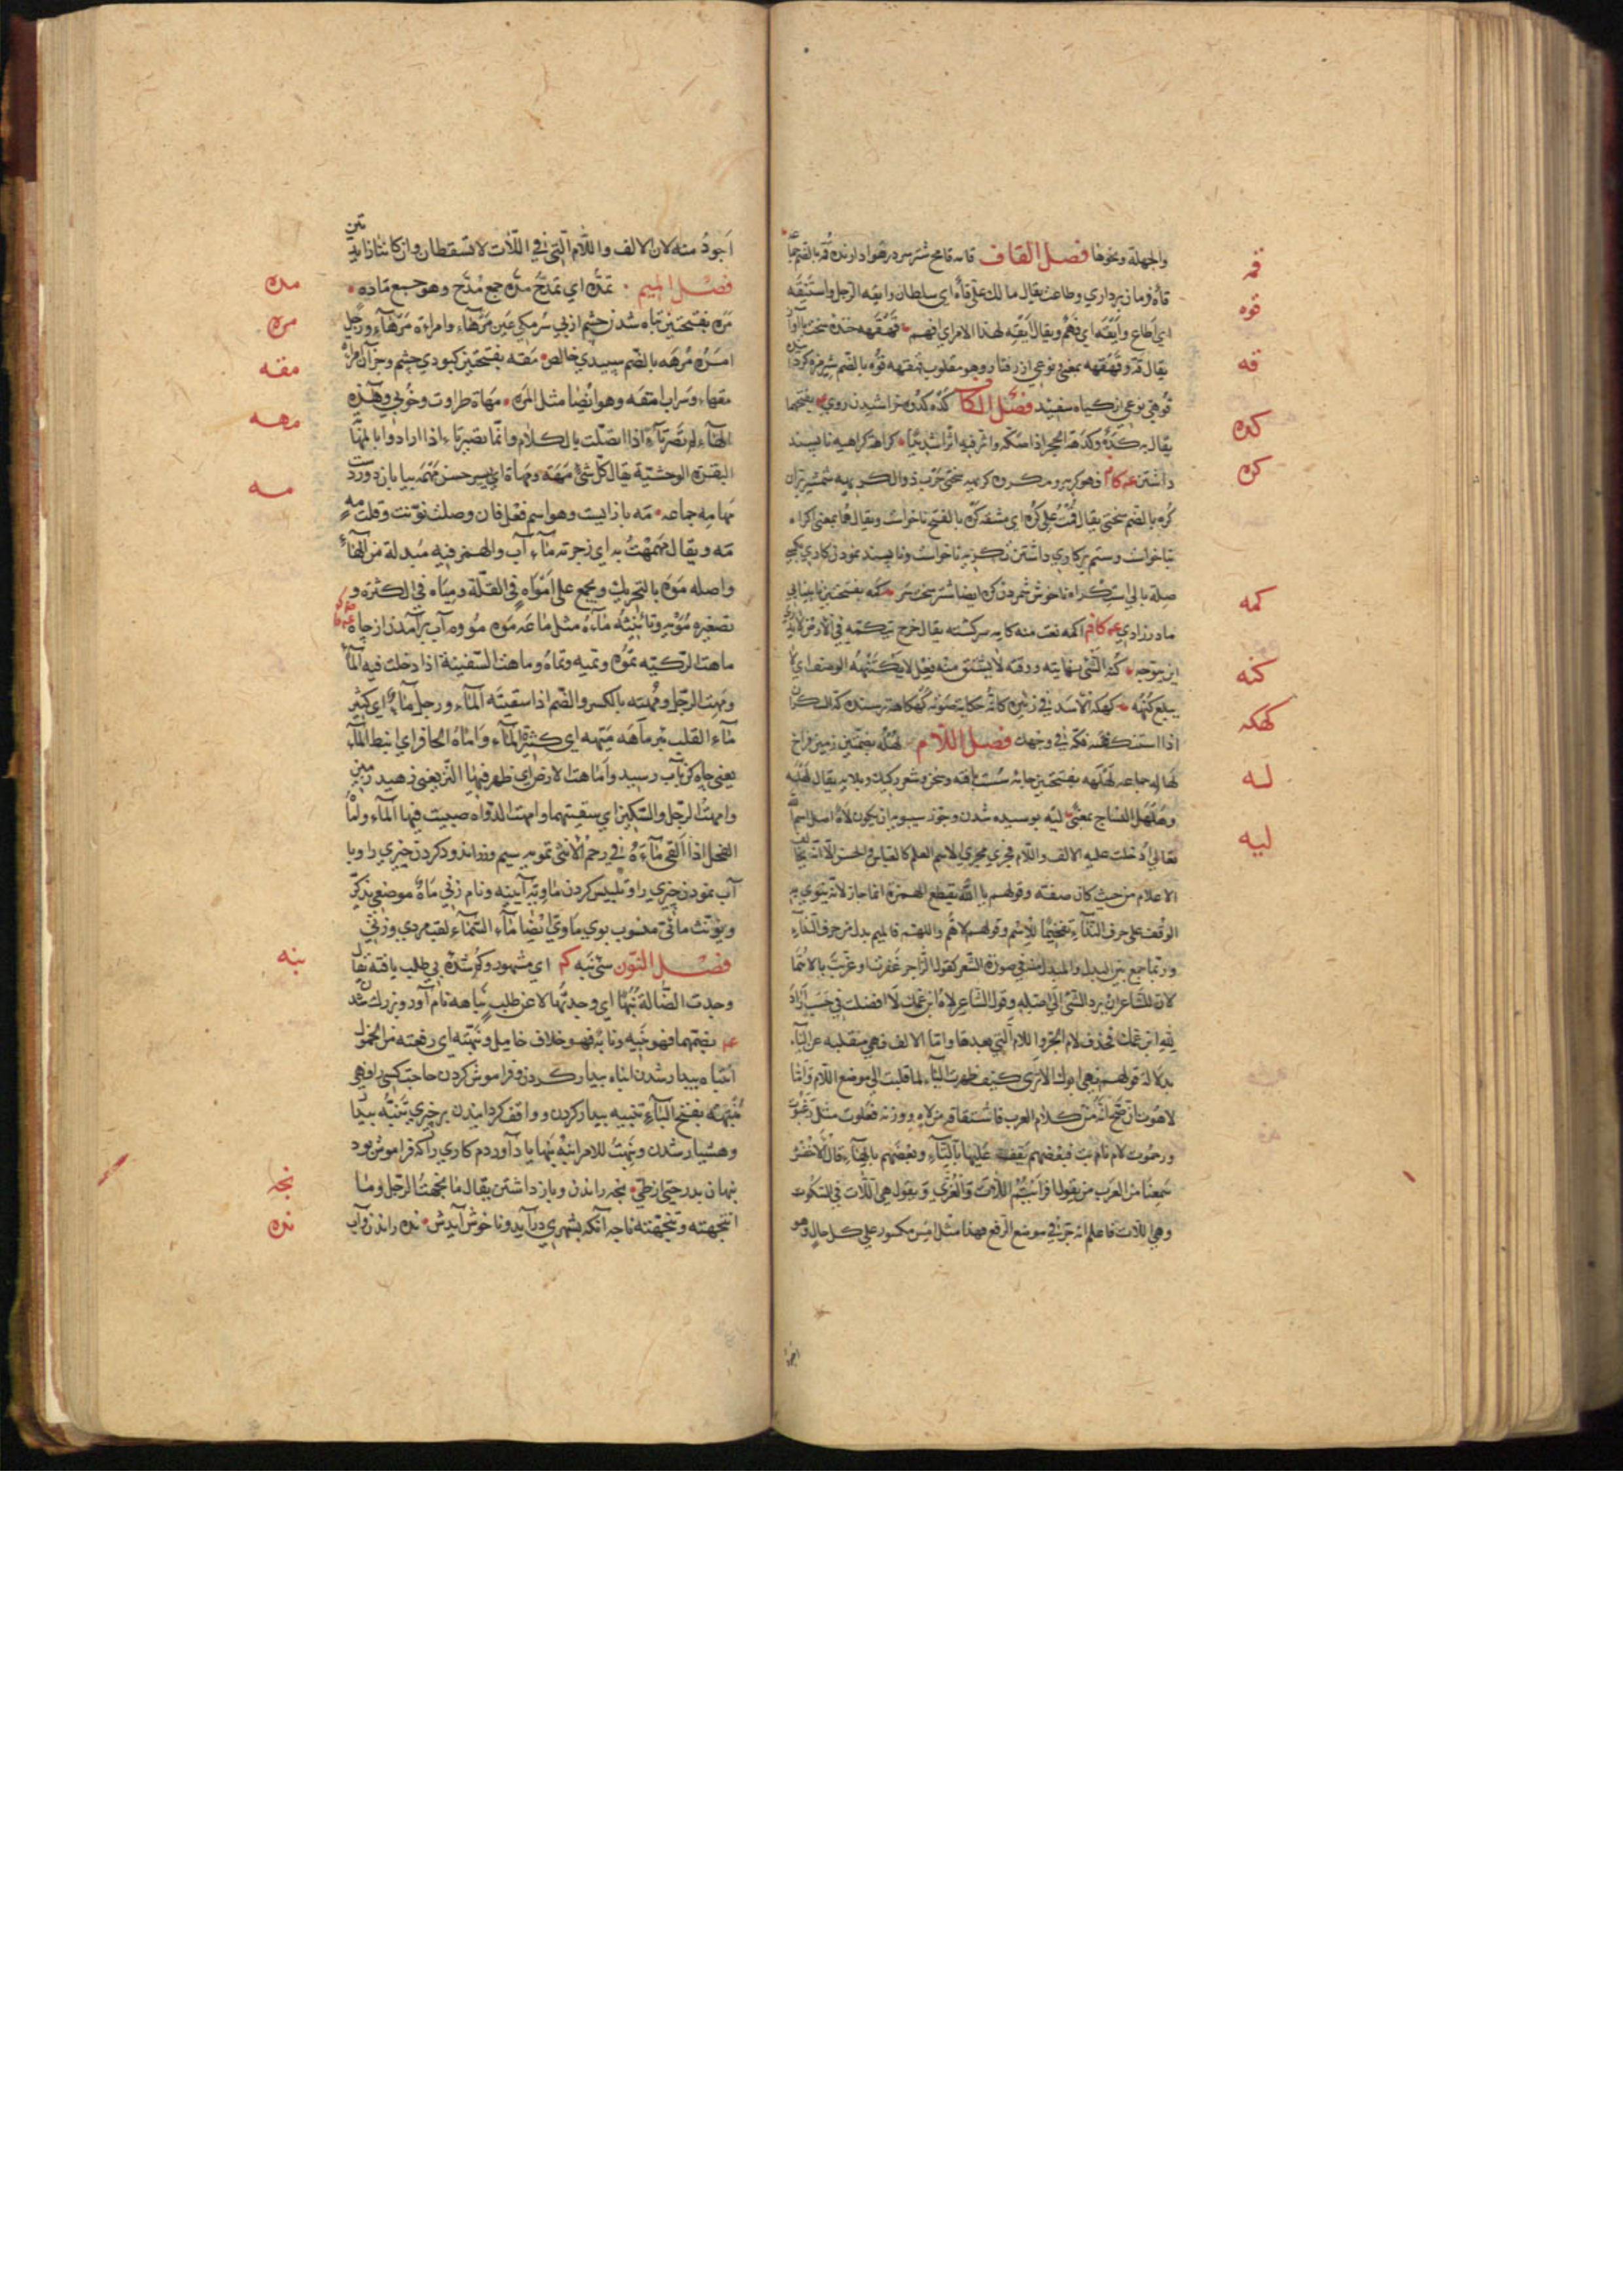 قمه
قوه
قه
كده
كره
كمه
كنه
كهكه
له
ليه
والجهلة ونحوها فصل القاف قامه قامح شتر سر در هوا دارنده قمه بالضم
قاه فرمان برداري وطاعت يقال مالك علي قاه اي سلطان وايقه الرجل واستيقه
اي اطاع وايقه اي فهم ويقال ايقه لهذا الامر اي افهم قهقهه خنده سخت
يقال قه وقهقهه بمعني ونوعي از رفتار وهو مقلوب هقهقه قوه بالضم شير مزه كرد
قوهي نوعي از كياه سفيد فصل الكاف كده كدوه خراشيدن روي بفتحها
يقال به كده وكدهه الحجر اذا صكه واثر فيه اثرا شديدا كراهة كراهيه ناپسند
داشتن عه كام فهو كريه ومكروه كريهه سختي حرب ذو الكريهه شمشير بران
كره بالضم سختي يقال قمت علي كره اي مشقه كره بالفتح ناخواست ويقال هما بمعني اكراه
بناخواست وستم بر كاري داشتن تكريه ناخواست وناپسند نمودن كاري بكسي
صلة بالي استكراه ناخوش شمردن كره ايضا شتر سخت سر كمه بفتحتين نابينايي
مادرزادي عه كام اكمه نعت منه كامه سركشته يقال خرج يتكمه في الارض
اين يتوجه كنه الشي نهايته ووقته لا يشتق منه فعل لا يكتنهه الوصف اي لا
يبلغ كنهه كهكه الاسد في زئيره كانه حكاية صوته كهكاهة ترسنده كه السكران
اذا استنكهته فكه في وجهك فصل اللام لهله بضمتين زمين فراخ
لهاله جماعه لهلهه بفتحتين جامه سست بافته وسخن وشعر ركيك وبلايه يقال لهله
وهلهل النساج بمعني ليه پوسيده شدن وجوز سيبويه ان يكون لاه اصل اسم الله
تعالي ادخلت عليه الالف واللام فجري مجري الاسم العلم كالعباس والحسن الا انه يخالف
الاعلام من حيث كان صفته وقولهم يا الله بقطع الهمزة انما جاز لانه ينوي به
الوقف علي حرف النداء تفخيما للاسم وقولهم لاهم واللهم فالميم بدل من حرف النداء
وربما جمع بين البدل والمبدل منه في ضرورة الشعر كقول الراجز غفرت او عذبت يا اللهما
لان للشاعر ان يرد الشي الي اصله وقول الشاعر لاه ابن عمك لا افضلت في حسب اراد
لله ابن عمك فحذف لام الجر واللام التي بعدها واما الالف فهي منقلبه عن الياء
بدلالة قولهم لهي ابوك الا تري كيف ظهرت الياء لما قلبت الي موضع اللام واما
لاهوت ان صح انه من كلام العرب فاشتقاقه من لاه ووزنه فعلوت مثل رغبوت
ورحموت لات نام بت فبعضهم يقف عليها بالتاء وبعضهم بالهاء قال الاخفش
سمعنا من العرب من يقول افرايتم اللات والعزي ويقول هي اللات في السكوت
وهي اللات فاعلم انه جر في موضع الرفع فهذا مثل امس مكسور علي كل حال وهو
اجود
اجود منه لان الالف واللام التي في اللات لا تسقطان وان كانتا زايدتين
فصل الميم تمده اي تمدح مده جمع مدح وهو جمع ماده
مره بفتحتين تباه شدن چشم از بي سرمكي عين مرهاء وامراءة مرهاء ورجل
امره مرهه بالضم سپيدي خالص مقه بفتحتين كبودي چشم وجز آن
مقهاء وسراب امقه وهو ايضا مثل المره مهاة طراوت وخوبي وهذه
الهاء لم تصر تاء اذا اتصلت بالكلام وانما تصير تاء اذا ارادوا بالمهاة
البقرة الوحشية يقال كل شي مهه ومهاة اي يسير حسن مهمه بيابان دور دست
مهامه جماعه مه باز ايست وهو اسم فعل فان وصلت نونت وقلت مه
مه ويقال مهمهت به اي زجرته ماء آب والهمز فيه مبدلة من الهاء
واصله موه بالتحريك ويجمع علي امواه في القلة ومياه في الكثرة و
تصغيره مويه وتانيثه ماءة مثل ماعه موه مووه آب برآمدن از چاه
ماهت الركيه تموه وتميه وتماه وماهت السفينة اذا دخلت فيه الماء
ومهت الرجل ومهته بالكسر والضم اذا سقيته الماء ورجل ماه اي كثير
ماء القلب بير ماهه ميهه اي كثيرة الماء واماه الحافر اي انبط الماء
يعني چاه كن بآب رسيد واماهت الارض اي ظهر فيها النز يعني زهيد زمين
وامهت الرجل والسكين اي سقيتهما وامهت الدواة صببت فيها الماء واماه
الفحل اذا القي ماءه في رحم الانثي تمويه بسيم وزر اندود كردن چيزي را وبا
آب نمودن چيزي را وتلبيس كردن ماويه آيينه ونام زني ماه موضعي يذكر
ويونث مائي منسوب بوي ماوي ايضا ماء السماء لقب مردي وزني
فصل النون شي نبه كم اي مشهور وكم شده بي طلب يافته يقال
وجدت الضالة نبها اي وجدتها لا عن طلب نباهه نام آور وبزرك شدن
عه بضمهما فهو نبيه ونابه فهو خلاف خامل ونبهته اي رفعته من الخمول
انتباه بيدار شدن انباه بيدار كردن وفراموش كردن حاجت كسي را فهي
منبهة بفتح الباء تنبيه بيدار كردن وواقف كردانيدن بر چيزي تنبه بيدار
وهشيار شدن ونبهت للامر انبه نبها ياد آوردم كاري را كه فراموش بود
نبهان پدر حيي از طي نجه راندن وباز داشتن يقال ما نجهت الرجل وما
انتجهته وتنجهته ناجه آنكه بشهري درآيد وناخوش آيدش نده راندن وآب
مده
مره
مقه
مهه
مه
نبه
نجه
نده